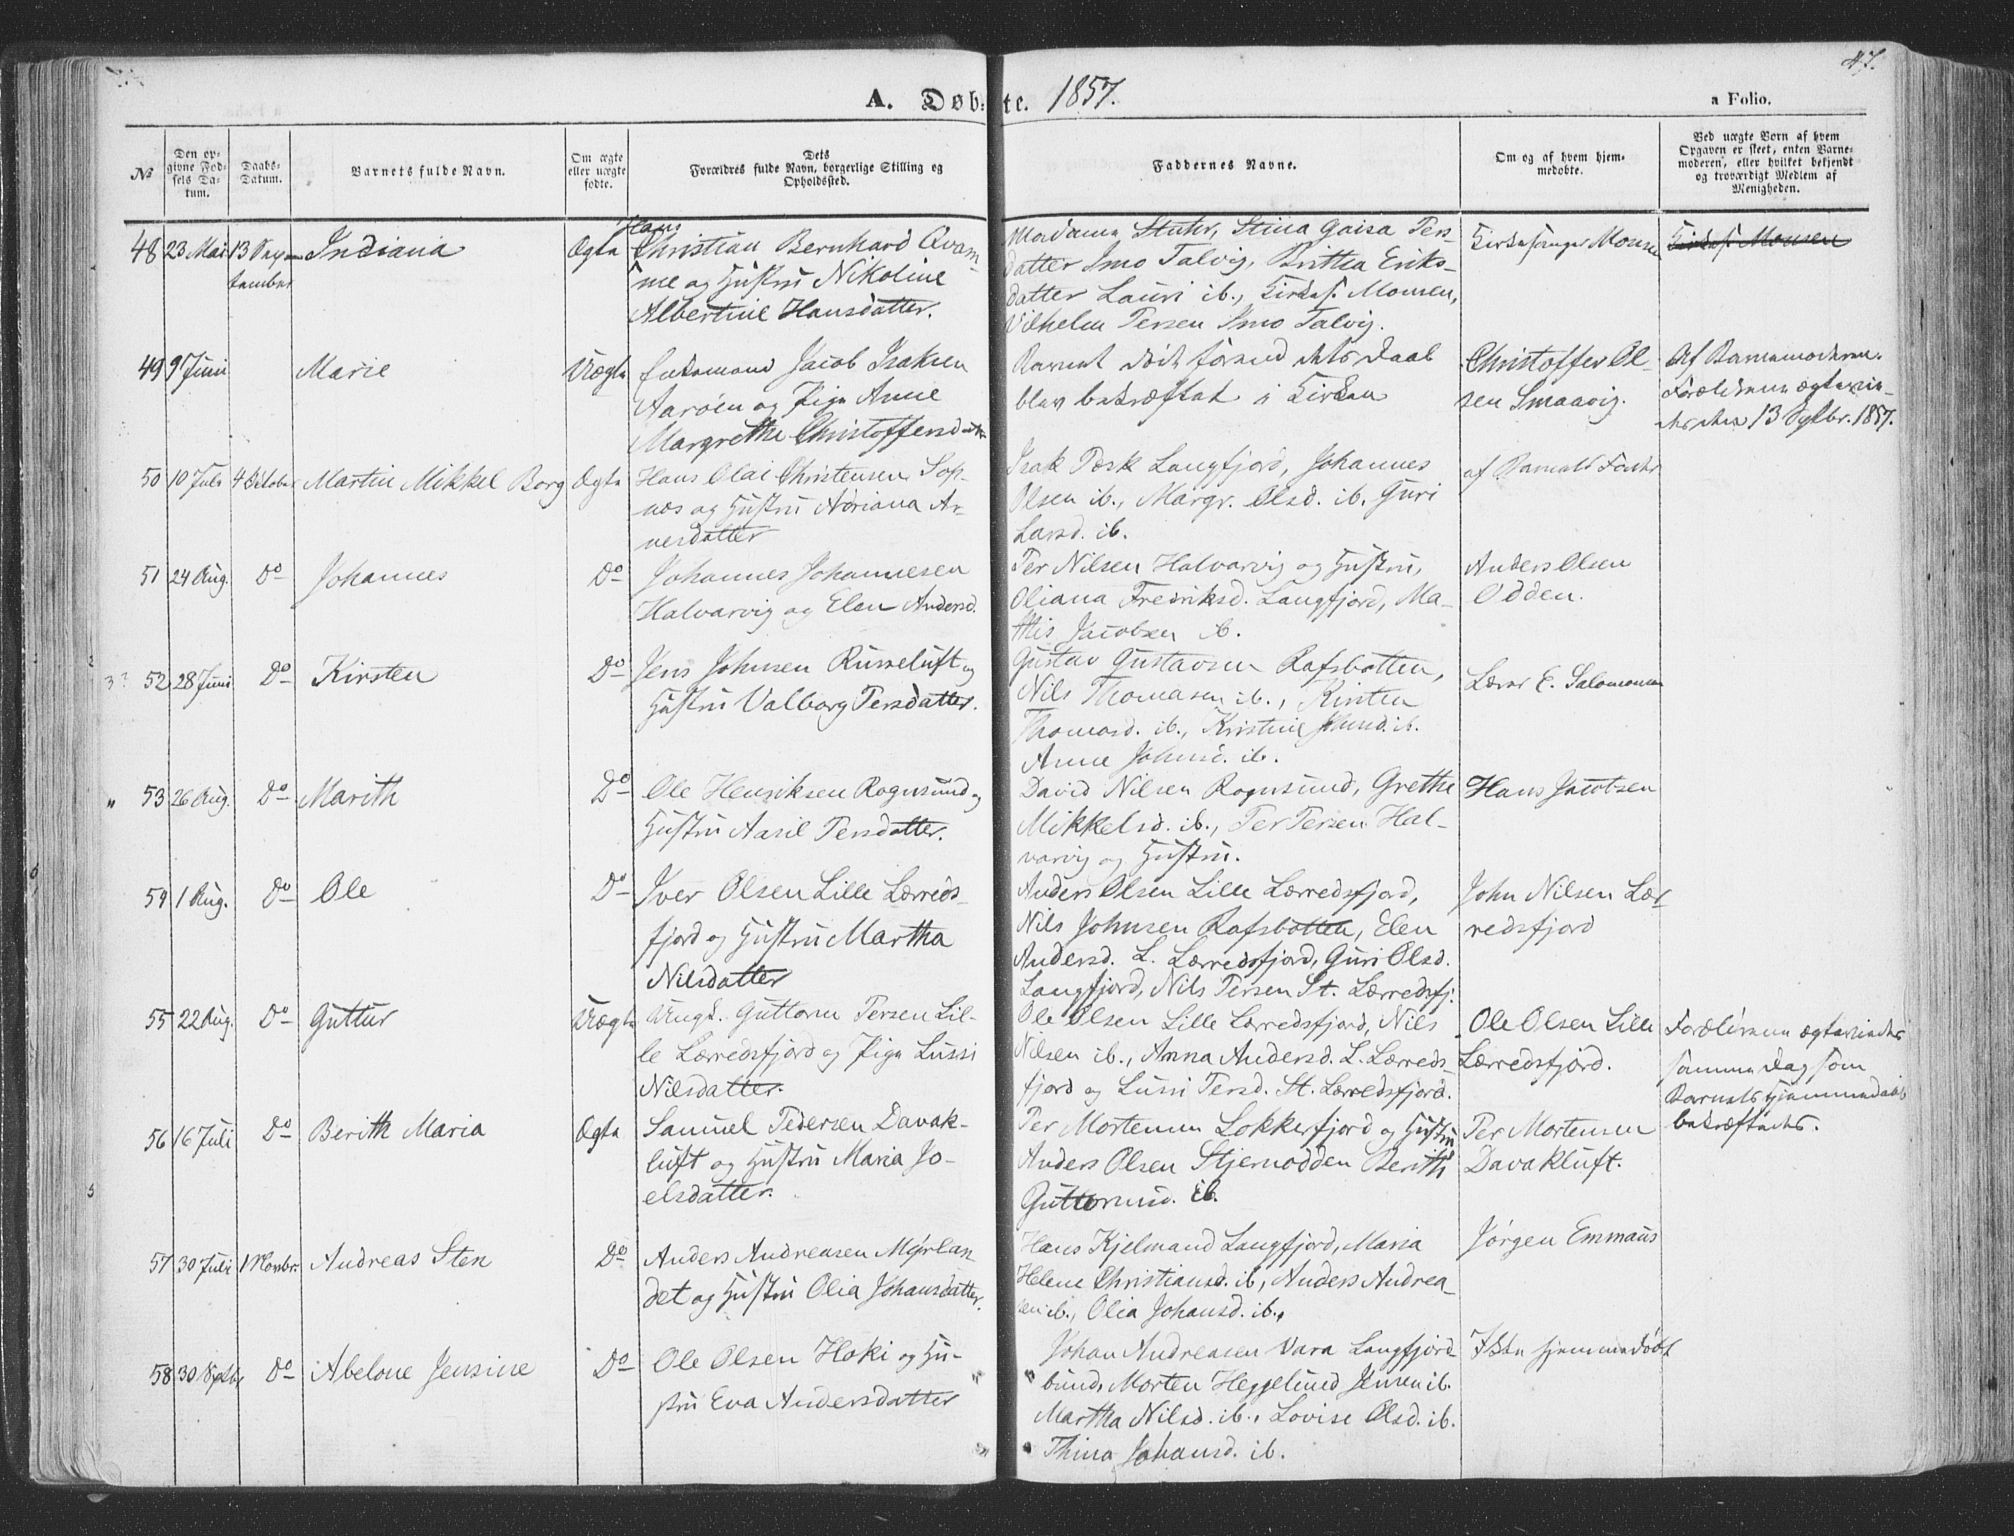 47.
A. Døbte. 1857.
a Folio.
No
Den op-
givne Fød-
sels Da-
tum.
Daabs-
Datum.
Barnets fulde Navn.
Om ægte
eller uægte
fødte.
Dets
Forældres fulde Navn, borgerlige Stilling og
Opholdssted.
Faddernes Navne.
Om og af hvem hjem-
medøbte.
Ved uægte Børn af hvem
Opgaven er skeet, enten Barne-
moderen, eller hvilket bekjendt
og troværdigt Medlem af
Menigheden.
48 23 Mai 13 Septem-
tember
Indiana
Ægte
Hans
Christian Bernhard Qvam-
me og Hustru Nikoline
Albertine Hansdatter.
Madame Stuhr, Stina Gaisa Pers-
datter Smo Talvig, Britha Eriks-
datter Lauri ib., Kirkes. Monsen,
Vilhelm Persen Smo Talvig.
Kirkesanger Monsen
Kirkes. Monsen
49 9 Juni
Marie
Uægte
Enkemand Jacob Isaksen
Aarøen og Pige Anne
Margrethe Christoffersdatter
Barnet døde førend dets Daab
blev bekræftet i Kirken
Christoffer Ol-
sen Smaavig.
Af Barnemoderen.
Forældrene ægtevie-
des den 13 Septbr. 1857.
50 10 Juli 4 October
Martin Mikkel Borg
Ægte
Hans Olai Christensen Sop-
nes og Hustru Adriana Ar-
nesdatter
Isak Pæsk Langfjord, Johannes
Olsen ib., Margr. Olsd. ib. Guri
Larsd. ib.
af Barnets Fader
51 24 Aug. Do
Johannes
Do
Johannes Johannesen
Halvarvig og Elen Andersd.
Per Nilsen Halvarvig og Hustru,
Oliana Fredriksd. Langfjord, Ma-
this Jacobsen ib.
Anders Olsen
Odden.
3? 52 28 Juni Do
Kirsten
Do
Jens Johnsen Russeluft og
Hustru Valborg Persdatter.
Gustav Gustavsen Rafsbotten,
Nils Thomasen ib., Kirsten
Thomasd. ib., Kristine ib.
Anne Johnsd. ib.
Lærer E. Salomonsen
" 53 26 Aug. Do
Marith
Do
Ole Henriksen Rognsund og
Hustru Aasil Persdatter.
David Nilsen Rognsund, Grethe
Mikkelsd. ib., Per Persen Hal-
varvig og Hustru.
Hans Jacobsen
54 1 Aug. Do
Ole
Do
Iver Olsen Lille Lærreds-
fjord og Hustru Martha
Nilsdatter
Anders Olsen Lille Lærredsfjord,
Nils Johnsen Rafsbotten, Elen
Andersd. L. Lærredsfjord, Guri Olsd.
Langfjord, Nils Persen St. Lærredsfj.
John Nilsen Lær-
redsfjord
55 22 Aug. Do
Guttur
Uægte
Ungk. Guttorm Persen Lil-
le Lærredsfjord og Pige Lussi
Nilsdatter.
Ole Olsen Lille Lærredsfjord, Nils
Nilsen ib., Anna Andersd. L. Lærreds-
fjord og Lussi Persd. St. Lærredsfjord.
Ole Olsen Lille
Lærredsfjord.
Forældrene ægteviedes
samme Dag som
Barnets Hjemmedaab
bekræftedes.
56 16 Juli Do
Berith Maria
Ægte
Samuel Pedersen Davak-
luft og Hustru Maria Jo-
elsdatter.
Per Mortensen Lokkerfjord og Hustru
Anders Olsen Stjernodden Berith
Guttormsd. ib.
Per Mortensen
Davakluft.
57 30 Juli 1 Novbr.
Andreas Sten
Do
Anders Andreasen Mørlan
det og Hustru Olia Johansdatter.
Hans Kjelmand Langfjord, Maria
Helene Christiansd. ib, Anders Andrea-
sen ib., Olia Johansd. ib.,
Jørgen Emmaus
58 30 Septbr Do
Abelone Jensine
Do
Ole Olsen Hoki og Hu-
stru Eva Andersdatter
Johan Andreasen Vara Langfjord-
bund, Morten Heggelund Jensen ib.
Martha Nilsd. ib., Lovise Olsd. ib.
Thina Johansd. ib.
Ikke hjemmedøbt